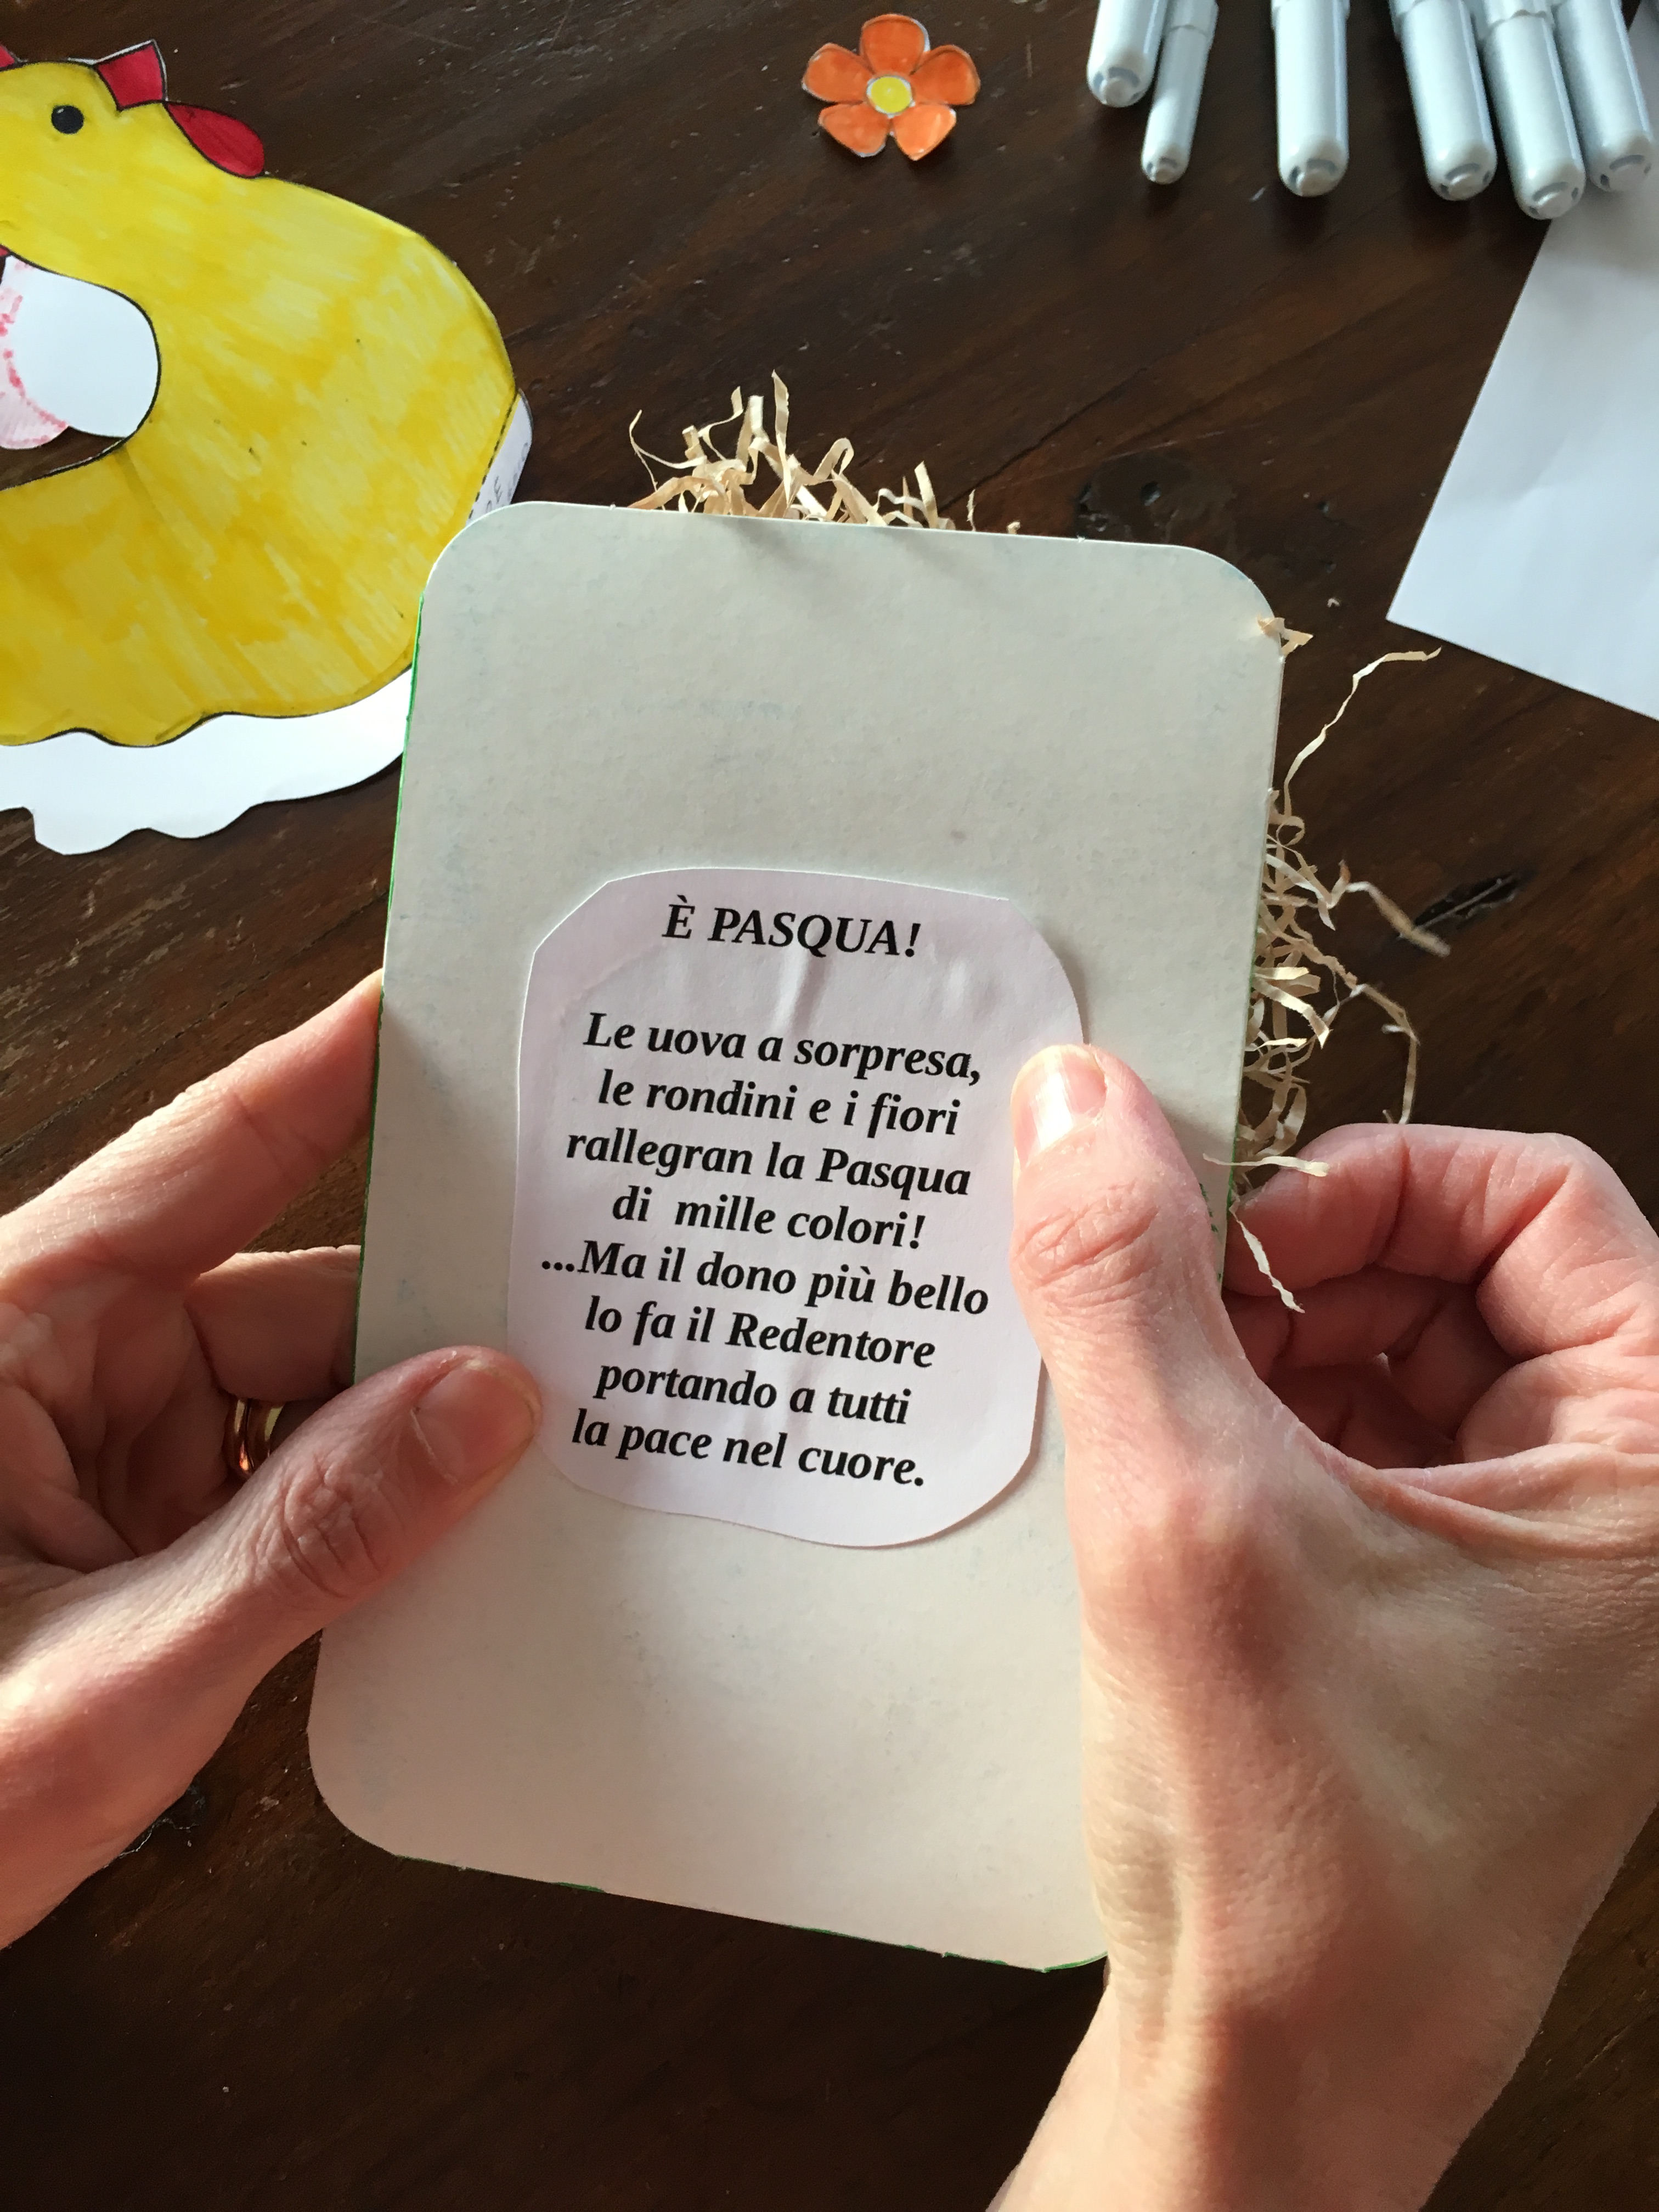 È PASQUA!
Le uova a sorpresa,
le rondini e i fiori
rallegran la Pasqua
di mille colori!
...Ma il dono più bello
lo fa il Redentore
portando a tutti
la pace nel cuore.